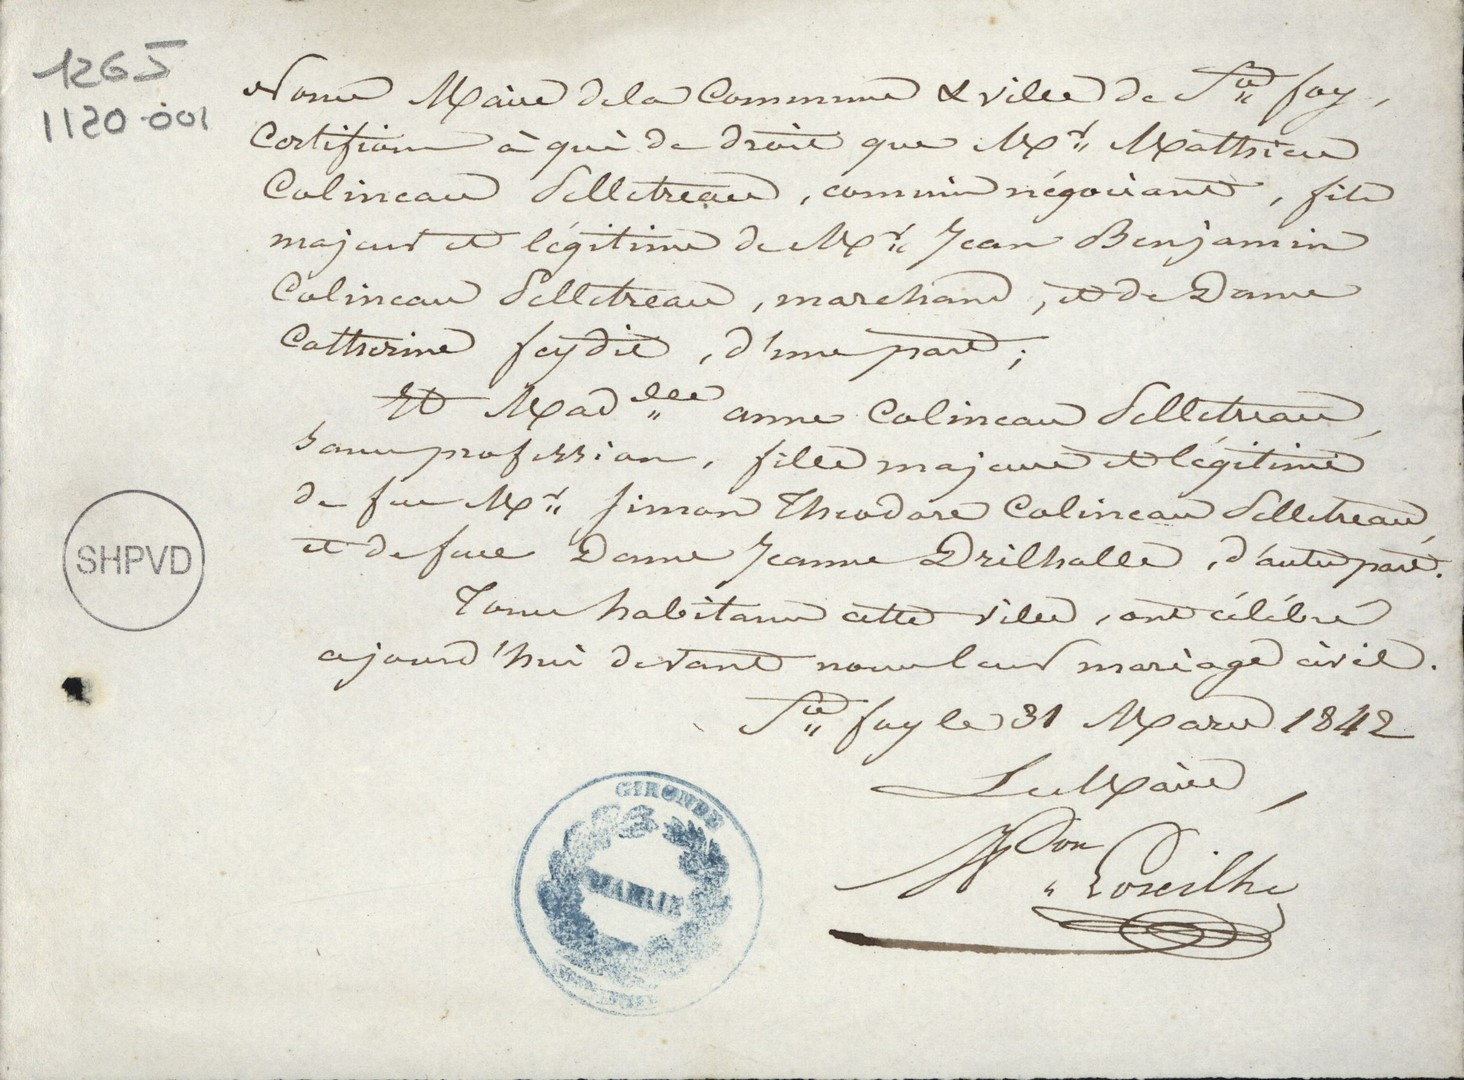 1265
1120.001
Nous Maire de la Commune & ville de Ste foy,
Certifions à qui de droit que Mr Mathieu
Colineau Pelletreau, commis négociant, fils
majeur et légitime de Mr Jean Benjamin
Colineau Pelletreau, marchand, et de Dame
Catherine feydit, d'une part;
Et Madlle anne Colineau Pelletreau,
sans profession, fille majeure et légitime
de feu Mr Simon Théodore Colineau Pelletreau,
et de feue Dame Jeanne Drilholle, d'autre part.
Tous habitans cette ville, ont célébré
ajourd'hui devant nous leur mariage civil.
Ste foy le 31 Mars 1842
Le Maire,
SHPVD
GIRONDE
MAIRIE